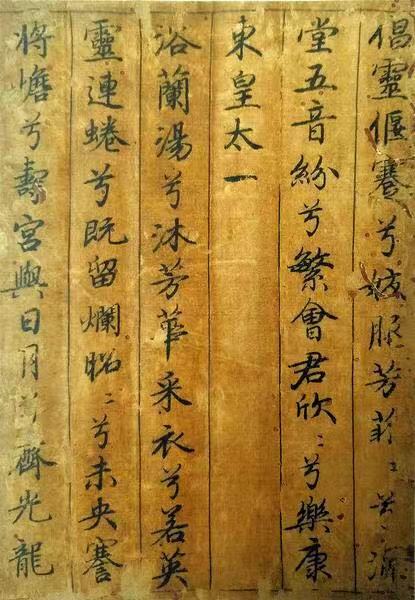 倡靈偃蹇兮姣服芳菲〻兮滿
堂五音紛兮繁會君欣〻兮樂康
東皇太一
浴蘭湯兮沐芳華采衣兮若英
靈連蜷兮既留爛昭〻兮未央蹇
將憺兮壽宮與日月兮齊光龍